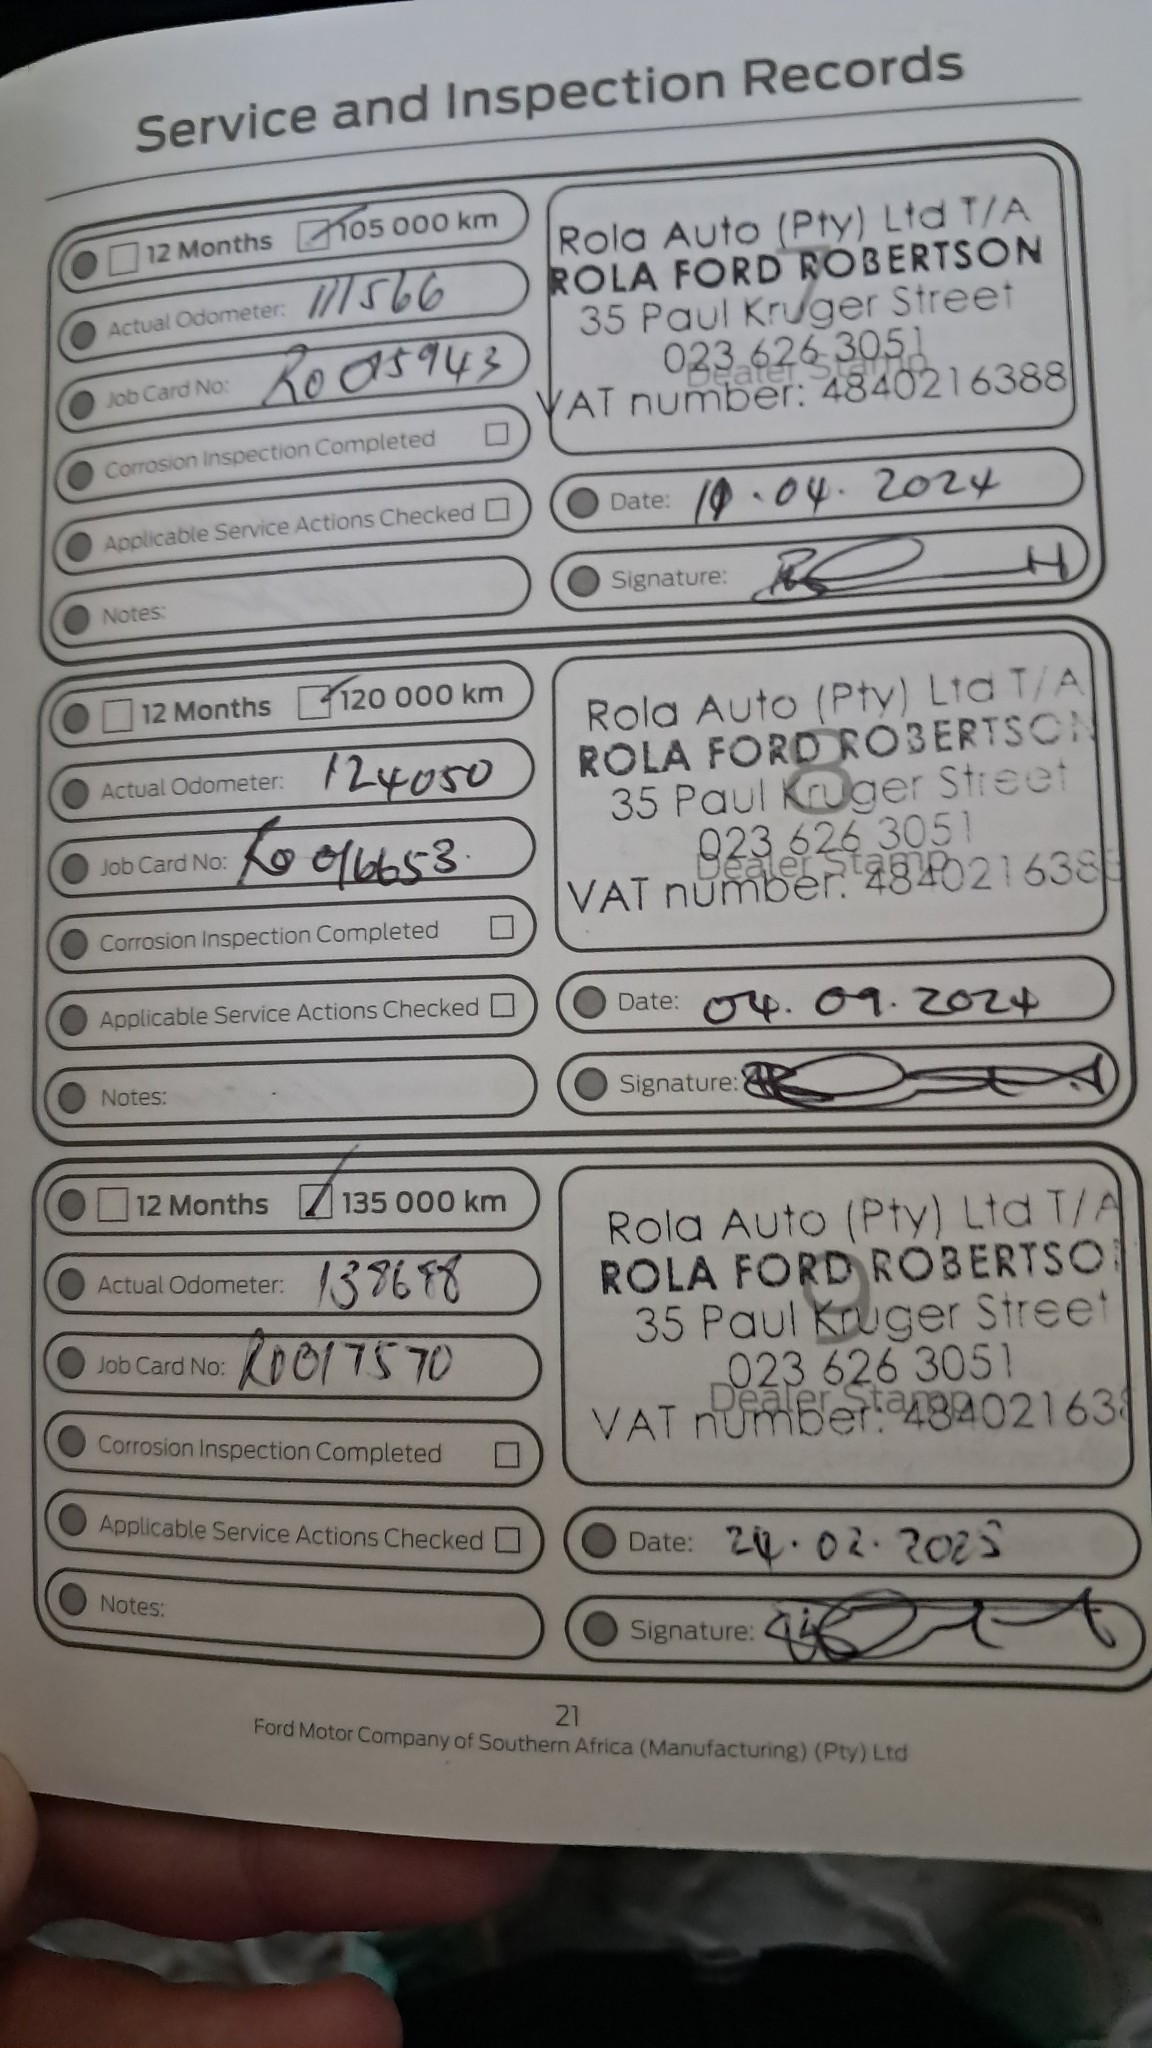 Service and Inspection Records
12 Months 105 000 km
Actual Odometer: 111566
Job Card No: R0015943
Corrosion Inspection Completed
Applicable Service Actions Checked
Notes:
Rola Auto (Pty) Ltd T/A
ROLA FORD ROBERTSON
35 Paul Kruger Street
023 626 3051
Dealer Stamp
VAT number: 4840216388
7
Date: .04.2024
Signature:
12 Months 120 000 km
Actual Odometer: 124050
Job Card No: R0016653
Corrosion Inspection Completed
Applicable Service Actions Checked
Notes:
Rola Auto (Pty) Ltd T/A
ROLA FORD ROBERTSON
8
35 Paul Kruger Street
023 626 3051
Dealer Stamp
VAT number: 4840216388
Date: 04.09.2024
Signature:
12 Months 135 000 km
Actual Odometer: 138688
Job Card No: R0017570
Corrosion Inspection Completed
Applicable Service Actions Checked
Notes:
Rola Auto (Pty) Ltd T/A
ROLA FORD ROBERTSO
9
35 Paul Kruger Street
023 626 3051
Dealer Stamp
VAT number: 484021638
Date: 24.02.2025
Signature:
21
Ford Motor Company of Southern Africa (Manufacturing) (Pty) Ltd